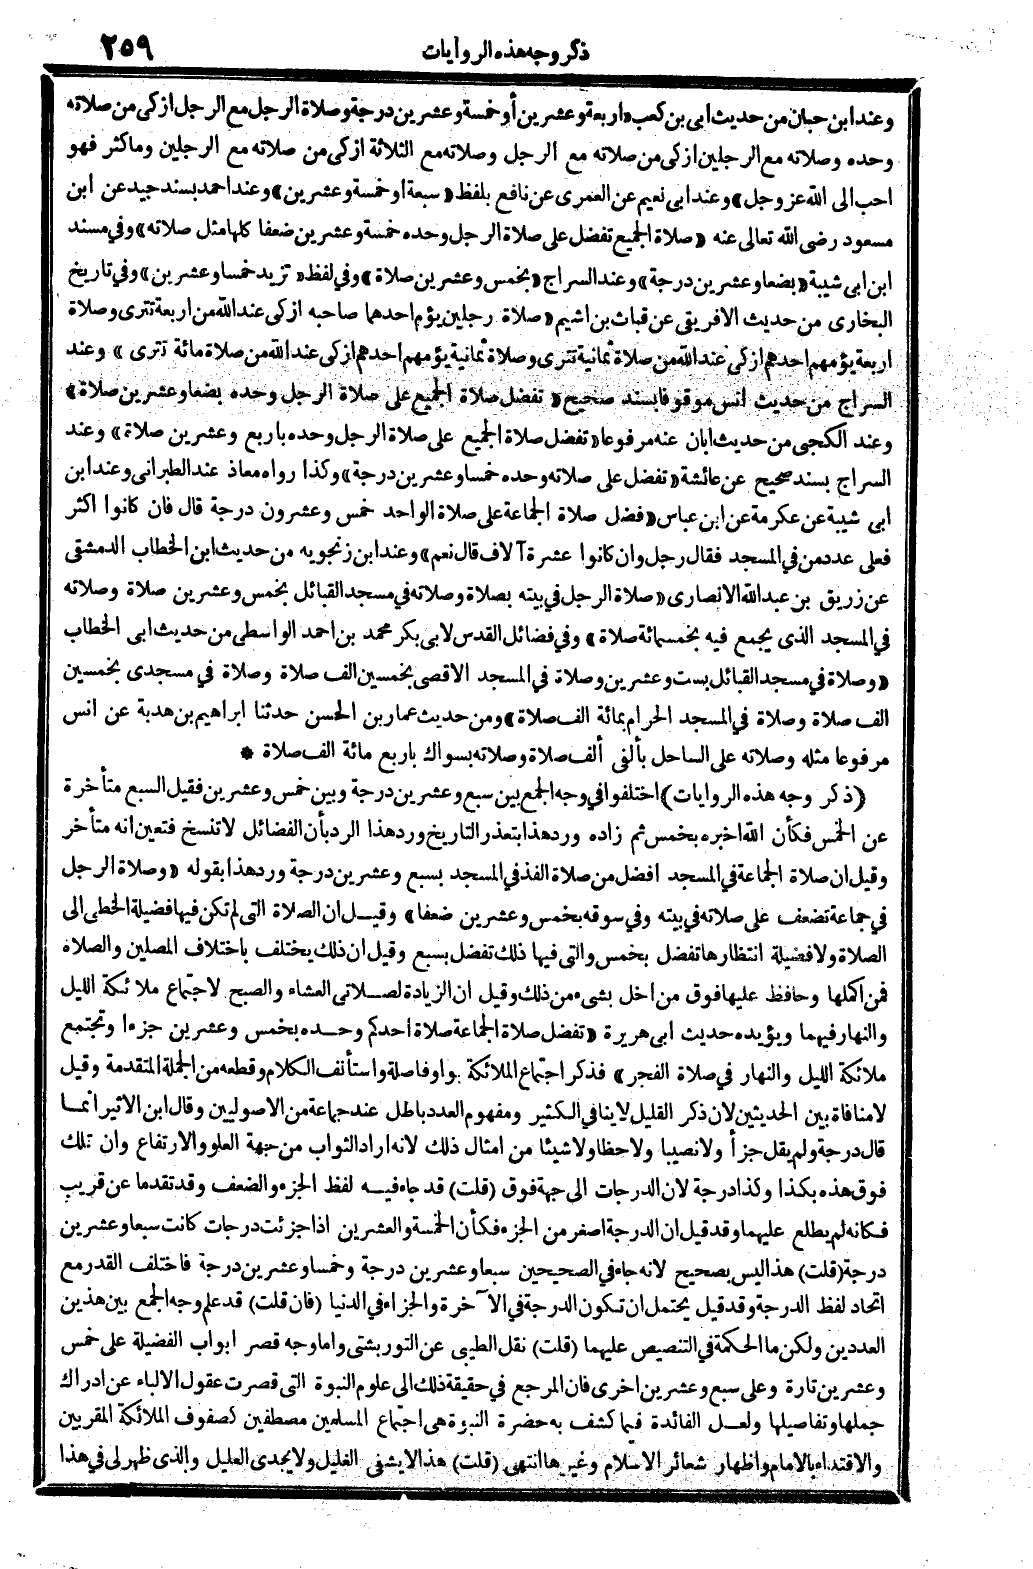 ذكر وجه هذه الروايات
٢٥٩
وعند ابن حبان من حديث ابى بن كعب «اربعة وعشرين أو خمسة وعشرين درجة وصلاة الرجل مع الرجل ازكى من صلاته
وحده وصلاته مع الرجلين ازكى من صلاته مع الرجل وصلاته مع الثلاثة ازكى من صلاته مع الرجلين وما كثر فهو
احب الى الله عز وجل» وعند ابى نعيم عن العمرى عن نافع بلفظ «سبعة او خمسة وعشرين» وعند احمد بسند جيد عن ابن
مسعود رضى الله تعالى عنه «صلاة الجميع تفضل على صلاة الرجل وحده خمسة وعشرين ضعفا كلها مثل صلاته» وفى مسند
ابن ابى شيبة «بضعا وعشرين درجة» وعند السراج «بخمس وعشرين صلاة» وفى لفظ «تزيد خمسا وعشرين» وفى تاريخ
البخارى من حديث الافريقى عن قباث بن اشيم «صلاة رجلين يؤم احدهما صاحبه ازكى عند الله من اربعة تترى وصلاة
اربعة يؤمهم احدهم ازكى عند الله من صلاة ثمانية تترى وصلاة ثمانية يؤمهم احدهم ازكى عند الله من صلاة مائة تترى» وعند
السراج من حديث انس موقوفا بسند صحيح «تفضل صلاة الجميع على صلاة الرجل وحده بضعا وعشرين صلاة»
وعند الكجى من حديث ابان عنه مرفوعا «تفضل صلاة الجميع على صلاة الرجل وحده باربع وعشرين صلاة» وعند
السراج بسند صحيح عن عائشة «تفضل على صلاته وحده خمسا وعشرين درجة» وكذا رواه معاذ عند الطبرانى وعند ابن
ابى شيبة عن عكرمة عن ابن عباس «فضل صلاة الجماعة على صلاة الواحد خمس وعشرون درجة قال فان كانوا اكثر
فعلى عدد من فى المسجد فقال رجل وان كانوا عشرة آلاف قال نعم» وعند ابن زنجويه من حديث ابن الخطاب الدمشقى
عن زريق بن عبد الله الانصارى «صلاة الرجل فى بيته بصلاة وصلاته فى مسجد القبائل بخمس وعشرين صلاة وصلاته
فى المسجد الذى يجمع فيه بخمسمائة صلاة» وفى فضائل القدس لابى بكر محمد بن احمد الواسطى من حديث ابى الخطاب
«وصلاة فى مسجد القبائل بست وعشرين وصلاة فى المسجد الاقصى بخمسين الف صلاة وصلاة فى مسجدى بخمسين
الف صلاة وصلاة فى المسجد الحرام بمائة الف صلاة» ومن حديث عمار بن الحسن حدثنا ابراهيم بن هدبة عن انس
مرفوعا مثله وصلاته على الساحل بألفى ألف صلاة وصلاته بسواك باربع مائة الف صلاة *
(ذكر وجه هذه الروايات) اختلفوا فى وجه الجمع بين سبع وعشرين درجة وبين خمس وعشرين فقيل السبع متأخرة
عن الخمس فكأن الله اخبره بخمس ثم زاده ورد هذا بتعذر التاريخ ورد هذا الرد بأن الفضائل لا تنسخ فتعين انه متأخر
وقيل ان صلاة الجماعة فى المسجد افضل من صلاة الفذ فى المسجد بسبع وعشرين درجة ورد هذا بقوله «وصلاة الرجل
فى جماعة تضعف على صلاته فى بيته وفى سوقه بخمس وعشرين ضعفا» وقيل ان الصلاة التى لم تكن فيها فضيلة الخطى الى
الصلاة ولا فضيلة انتظارها تفضل بخمس والتى فيها ذلك تفضل بسبع وقيل ان ذلك يختلف باختلاف المصلين والصلاة
فمن اكملها وحافظ عليها فوق من اخل بشىء من ذلك وقيل ان الزيادة لصلاتى العشاء والصبح لاجتماع ملائكة الليل
والنهار فيهما ويؤيده حديث ابى هريرة «تفضل صلاة الجماعة صلاة احدكم وحده بخمس وعشرين جزءا وتجتمع
ملائكة الليل والنهار فى صلاة الفجر» فذكر اجتماع الملائكة بواو فاصلة واستأنف الكلام وقطعه من الجملة المتقدمة وقيل
لا منافاة بين الحديثين لان ذكر القليل لا ينافى الكثير ومفهوم العدد باطل عند جماعة من الاصوليين وقال ابن الاثير انما
قال درجة ولم يقل جزأ ولا نصيبا ولا حظا ولا شيئا من امثال ذلك لانه اراد الثواب من جهة العلو والارتفاع وان تلك
فوق هذه بكذا وكذا درجة لان الدرجات الى جهة فوق (قلت) قد جاء فيه لفظ الجزء والضعف وقد تقدما عن قريب
فكانه لم يطلع عليهما وقد قيل ان الدرجة اصغر من الجزء فكأن الخمسة والعشرين اذا جزئت درجات كانت سبعا وعشرين
درجة (قلت) هذا ليس بصحيح لانه جاء فى الصحيحين سبعا وعشرين درجة وخمسا وعشرين درجة فاختلف القدر مع
اتحاد لفظ الدرجة وقد قيل يحتمل ان تكون الدرجة فى الآخرة والجزاء فى الدنيا (فان قلت) قد علم وجه الجمع بين هذين
العددين ولكن ما الحكمة فى التنصيص عليهما (قلت) نقل الطيبى عن التوربشتى واما وجه قصر ابواب الفضيلة على خمس
وعشرين تارة وعلى سبع وعشرين اخرى فان المرجع فى حقيقة ذلك الى علوم النبوة التى قصرت عقول الالباء عن ادراك
جملها وتفاصيلها ولعل الفائدة فيما كشف به حضرة النبوة هى اجتماع المسلمين مصطفين كصفوف الملائكة المقربين
والاقتداء بالامام واظهار شعائر الاسلام وغيرها انتهى (قلت) هذا لا يشفى الغليل ولا يجدى العليل والذى ظهر لى فى هذا